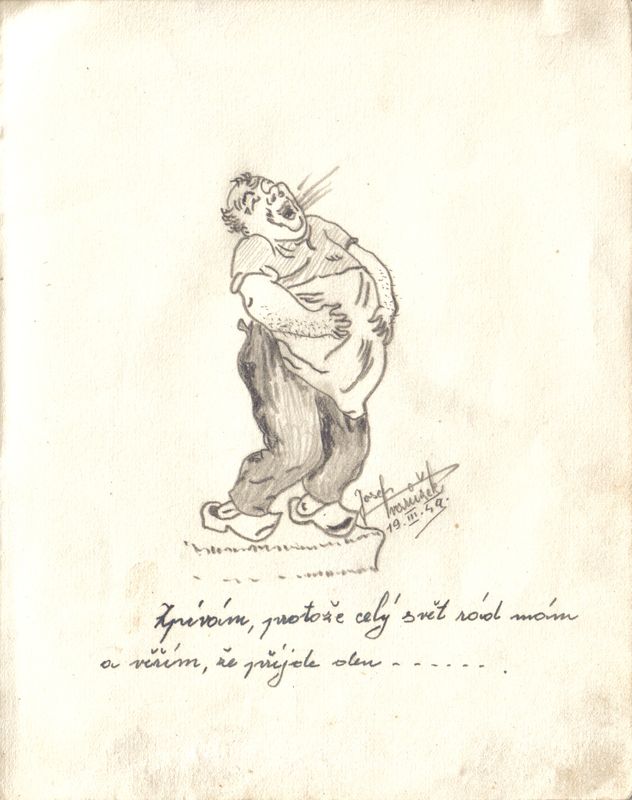 Josef
19. III. 42.
Zpívám, protože celý svět rád mám
a věřím, že příjde den - - - - - - .